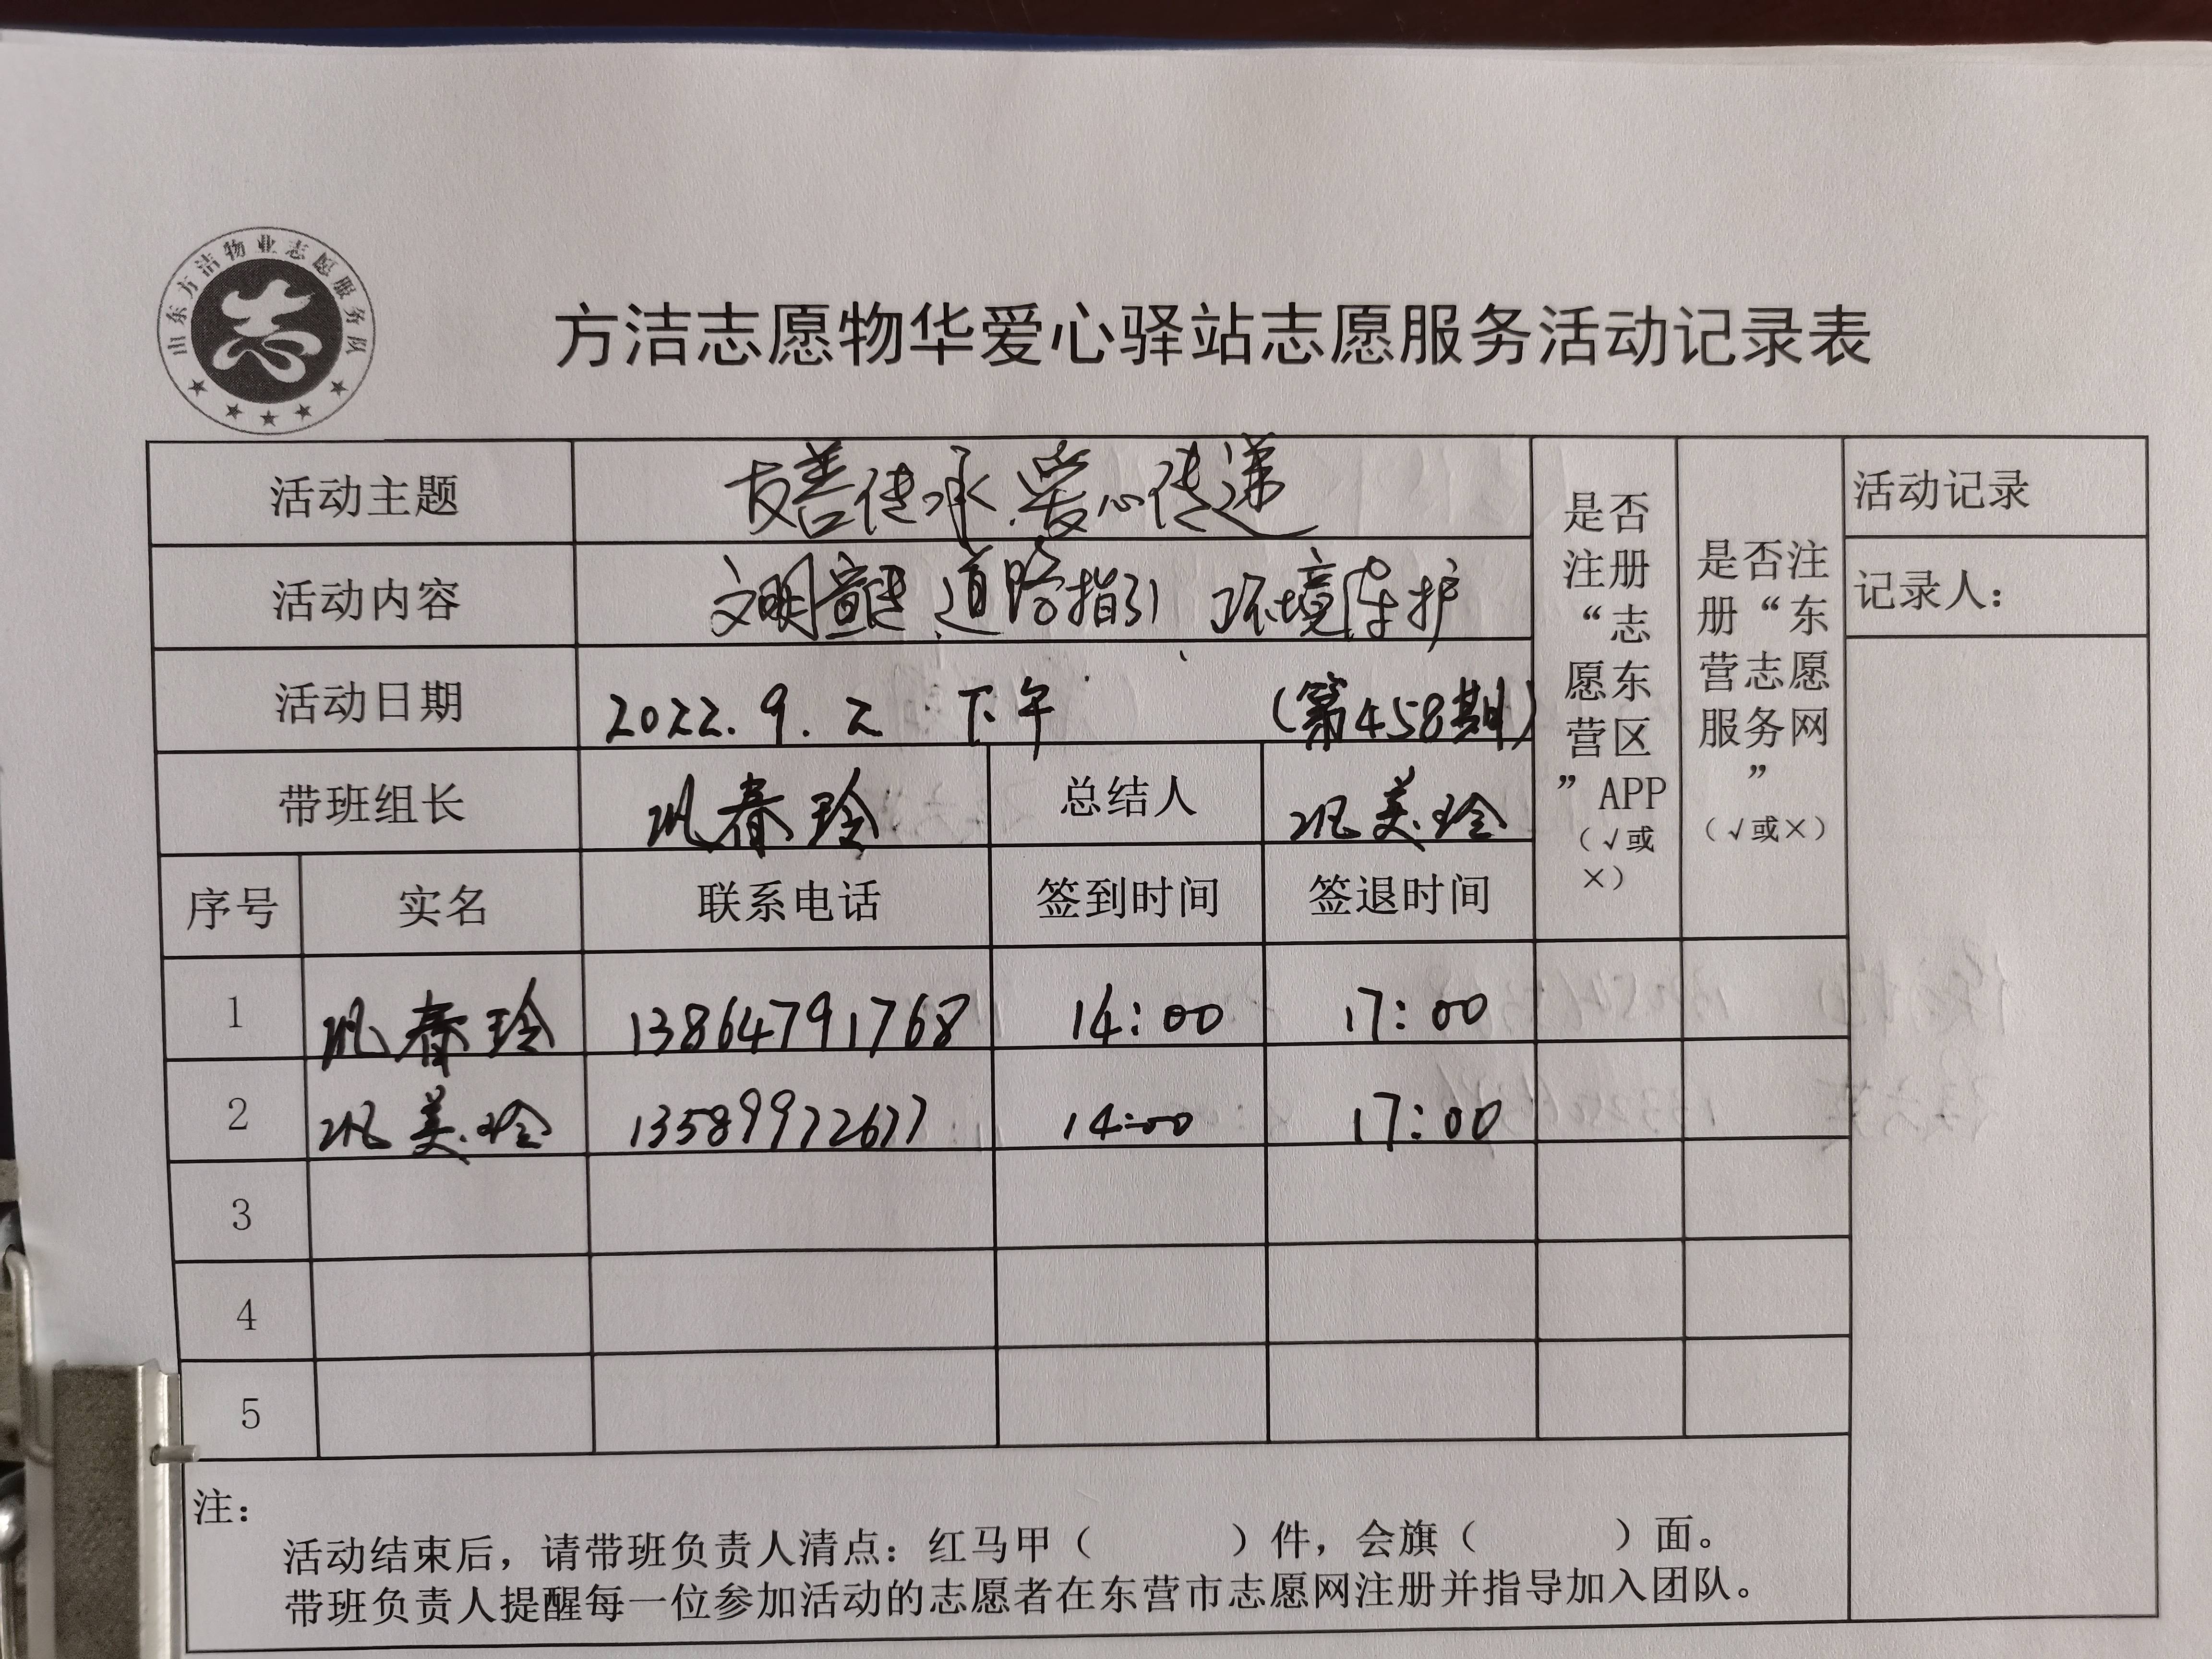 山东方洁物业志愿服务队
方洁志愿物华爱心驿站志愿服务活动记录表
活动主题 友善传承.爱心传递
活动内容 文明宣传 道路指引 环境维护
活动日期 2022.9.2 下午 (第458期)
带班组长 巩春玲 总结人 巩美玲
是否注册“志愿东营区”APP（√或×）
是否注册“东营志愿服务网”（√或×）
活动记录
记录人：
序号 实名 联系电话 签到时间 签退时间
1 巩春玲 13864791768 14:00 17:00
2 巩美玲 14:00 17:00
3
4
5
注：
活动结束后，请带班负责人清点：红马甲（ ）件，会旗（ ）面。
带班负责人提醒每一位参加活动的志愿者在东营市志愿网注册并指导加入团队。